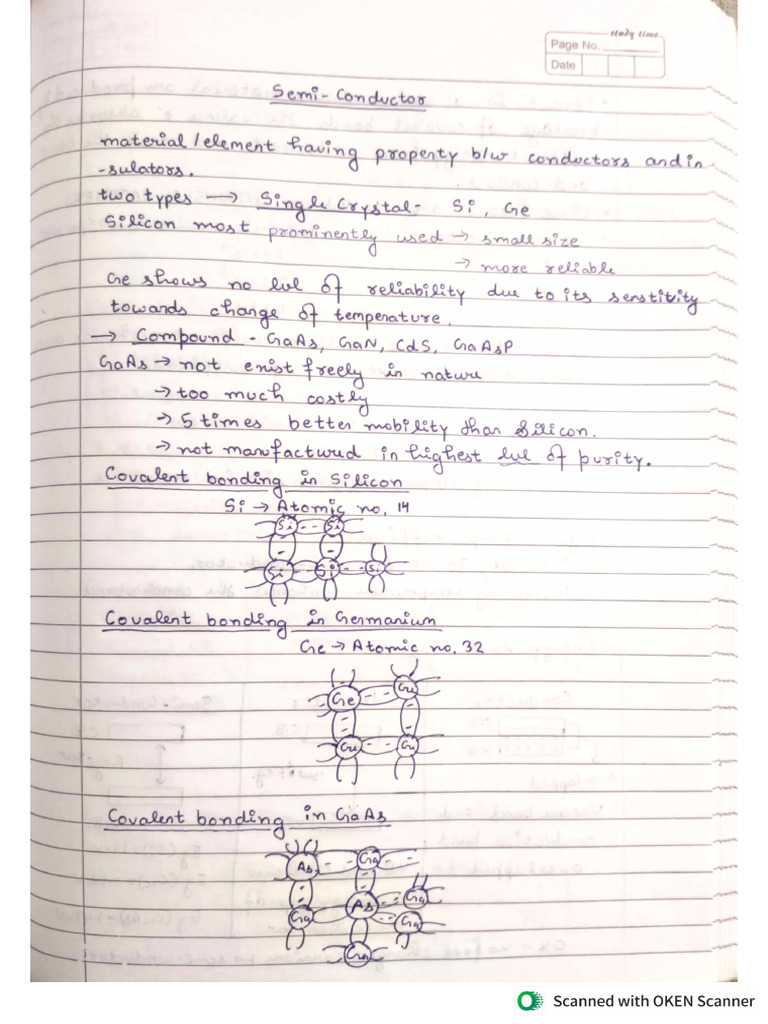 study time
Page No.
Date
Semi-Conductor
material/element having property b/w conductors and in
-sulators.
two types → Single Crystal- Si, Ge
Silicon most prominently used → small size
→ more reliable
Ge shows no lvl of reliability due to its senstitity
towards change of temperature.
→ Compound - GaAs, GaN, CdS, GaAsP
GaAs → not exist freely in nature
→ too much costly
→ 5 times better mobility than Silicon.
→ not manufactured in highest lvl of purity.
Covalent bonding in Silicon
Si → Atomic no. 14
Si Si
Si Si Si
Covalent bonding in Germanium
Ge → Atomic no. 32
Ge Ge
Ge Ge
Covalent bonding in GaAs
As Ga
Ga As Ga
Ga
Ga
Scanned with OKEN Scanner